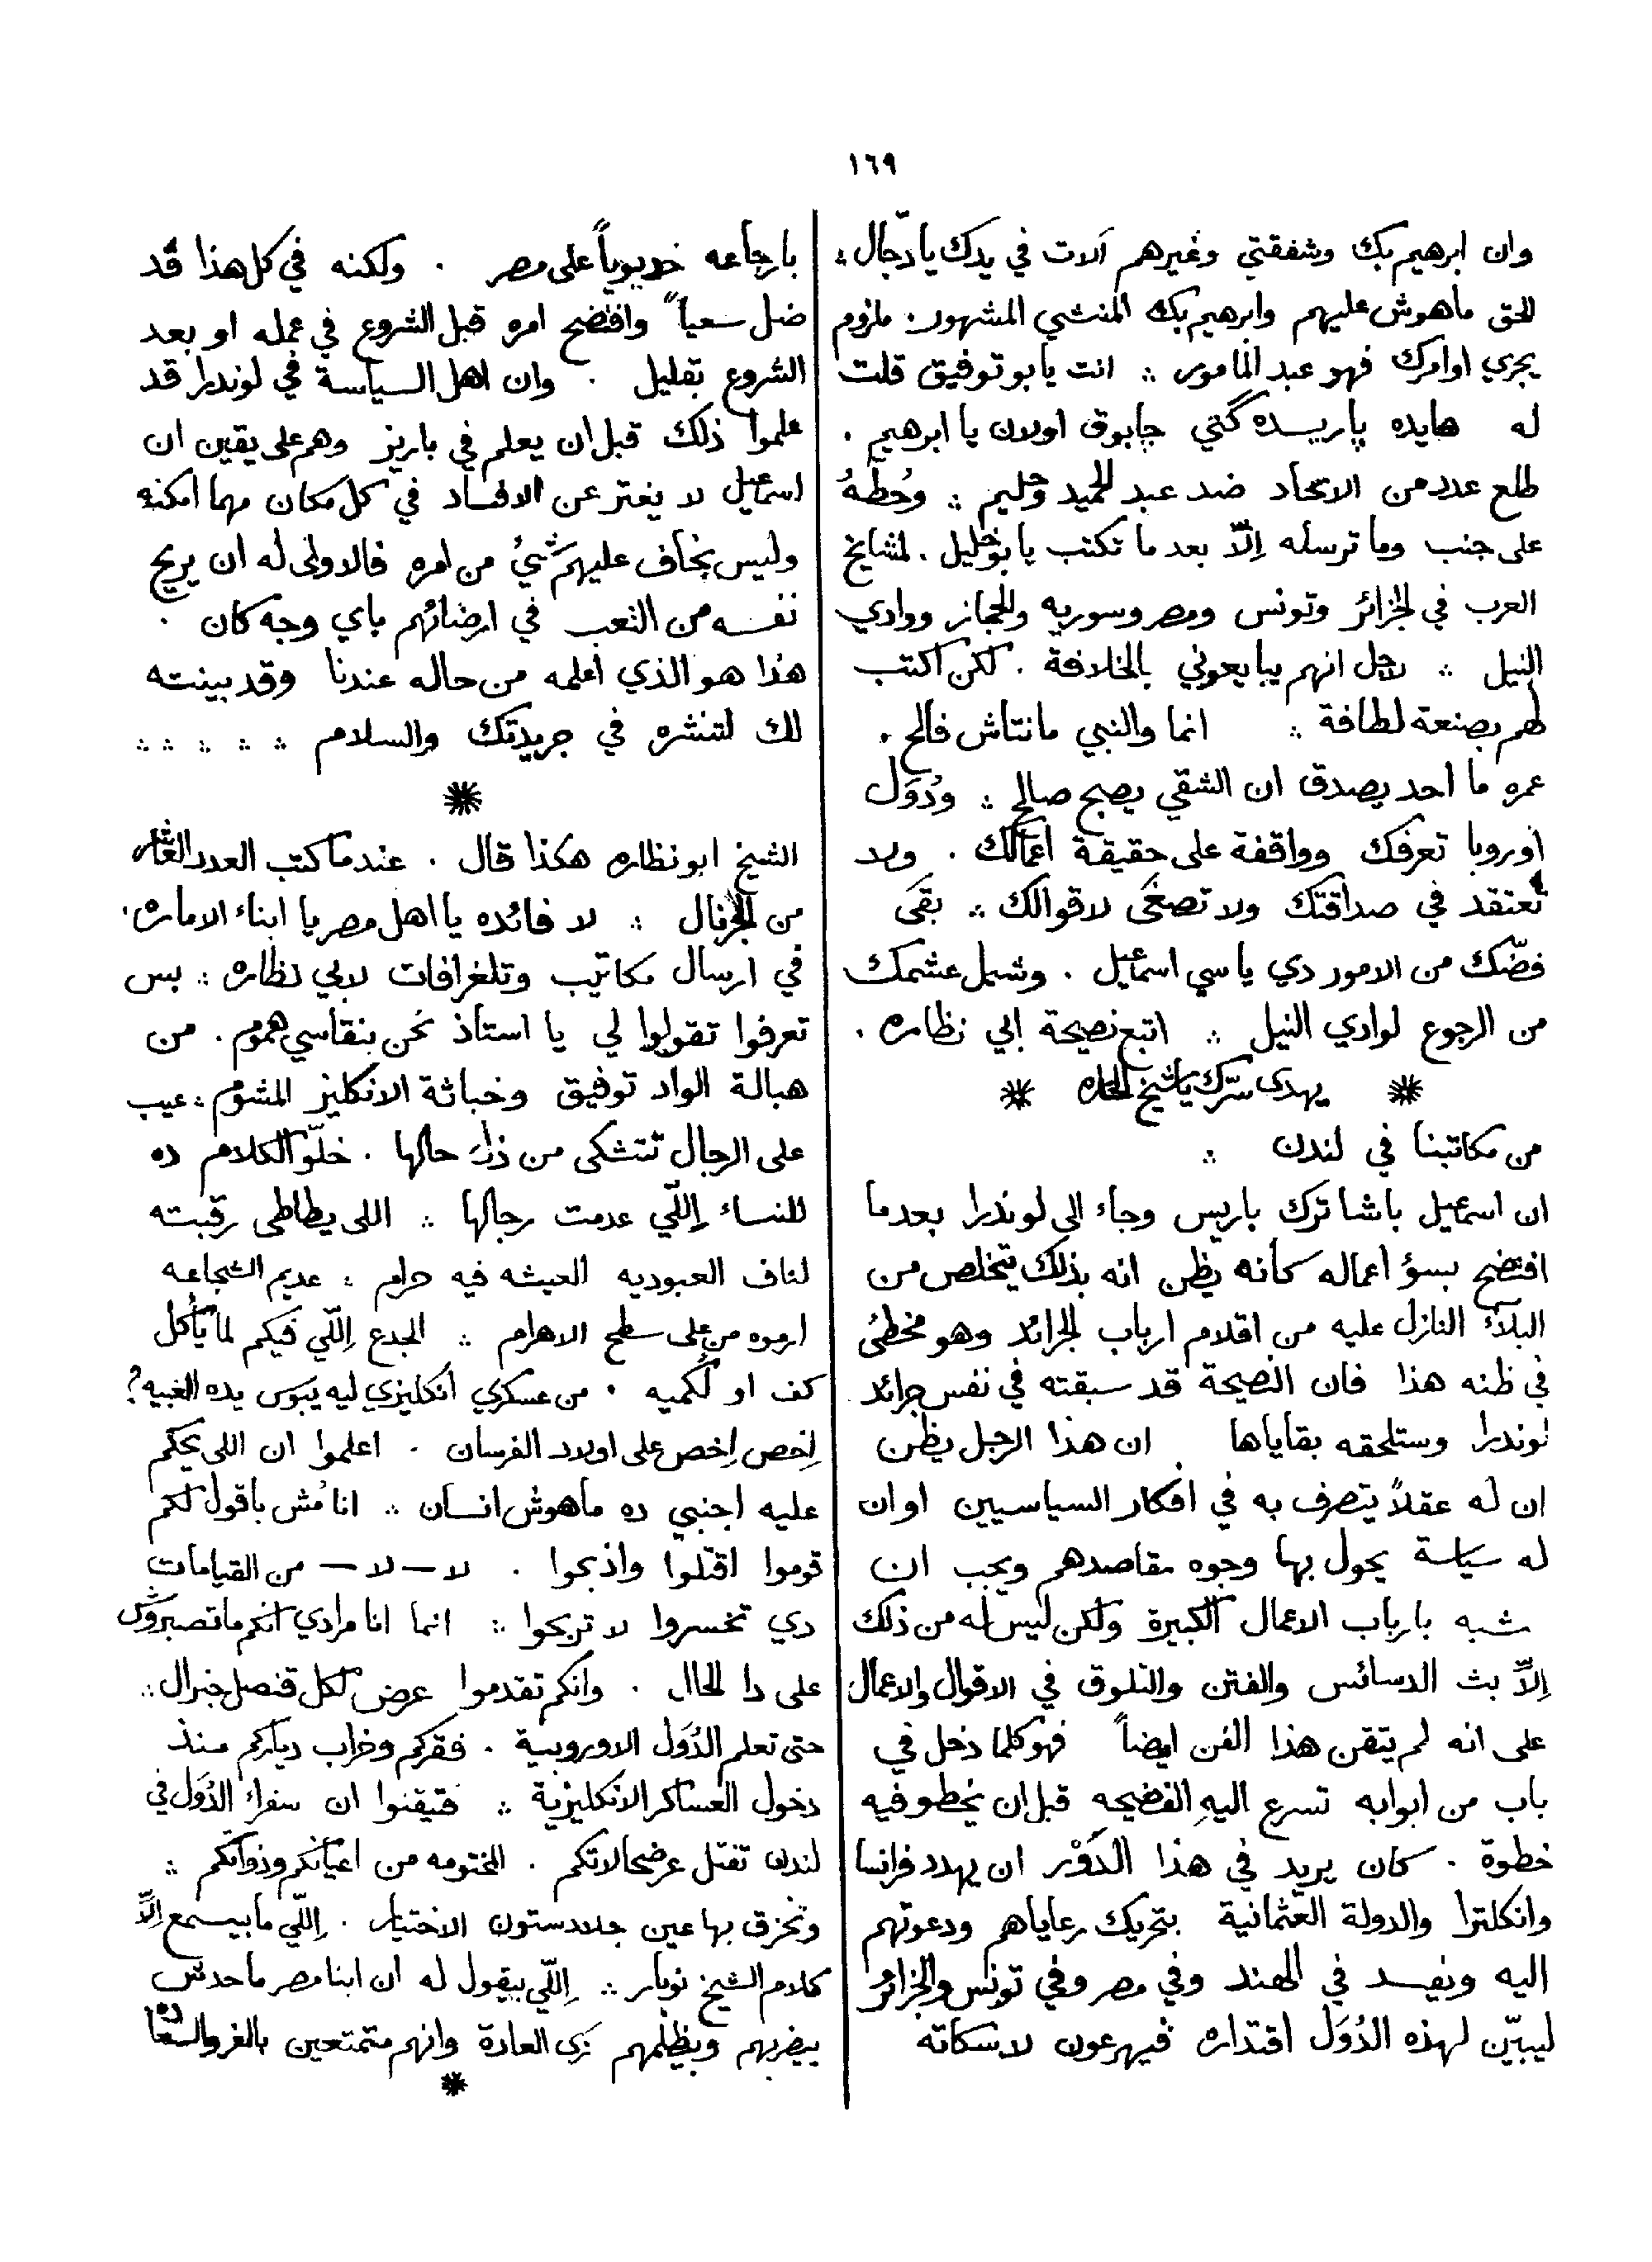 ١٦٩
وان ابرهيم بك وشفقتي وغيرهم آلات في يدك يا دجّال ؞
الحق ماهوش عليهم وابرهيم بك المنشي المشهور . ملزوم
يجري اوامرك فهو عبد المأمور ؞ انت يا بو توفيق قلت
له هايده پاريسده گتي چابوق اولان يا ابرهيم .
طلع عدد من الاتحاد ضد عبد الحميد وحليم ؞ وحُطّهُ
على جنب وما ترسله إلّا بعد ما تكتب يا بو خليل . لمشايخ
العرب في الجزائر وتونس ومصر وسوريه والحجاز ووادي
النيل ؞ لاجل انهم يبايعوني بالخلافة . لكن اكتب
لهم بصنعة لطافة ؞ انما والنبي مانتاش فالح .
عمره ما احد يصدق ان الشقي يصبح صالح ؞ ودُوَل
اوروبا تعرفك وواقفة على حقيقة اعمالك . ولا
تعتقد في صداقتك ولا تصغَى لاقوالك ؞ بقَى
فضّك من الامور دي يا سي اسمعيل . وشيل عشمك
من الرجوع لوادي النيل ؞ اتبع نصيحة ابي نظاره .
يهدى سرّك يا شيخ الحاره
من مكاتبنا في لندن ؞
ان اسمعيل باشا ترك باريس وجاء الى لوندرا بعدما
افتضح بسؤ اعماله كأنه يظن انه بذلك يتخلص من
البلاء النازل عليه من اقلام ارباب الجرائد وهو مخطئ
في ظنه هذا فان النصيحة قد سبقته في نفس جرائد
لوندرا وستلحقه بقاياها . ان هذا الرجل يظن
ان له عقلاً يتصرف به في افكار السياسيين او ان
له سياسة يحول بها وجوه مقاصدهم ويجب ان
شبه بارباب الاعمال الكبيرة ولكن ليس له من ذلك
إلاّ بث الدسائس والفتن والتلوق في الاقوال والاعمال
على انه لم يتقن هذا الفن ايضاً فهو كلما دخل في
باب من ابوابه تسرع اليهِ الفضيحه قبل ان يخطو فيه
خطوة . كان يريد في هذا الدَوْر ان يهدد فرانسا
وانكلترا والدولة العثمانية بتحريك رعاياهم ودعوتهم
اليه ويفسد في الهند وفي مصر وفي تونس والجزائر
ليبيّن لهذه الدُوَل اقتداره فيهرعون لاسكاته
بارجاعه خديوياً على مصر . ولكنه في كل هذا قد
ضل سعياً وافتضح امره قبل الشروع في عمله او بعد
الشروع بقليل . وان اهل السياسة في لوندرا قد
علموا ذلك قبل ان يعلم في باريز وهم على يقين ان
اسمعيل لا يفتر عن الافساد في كل مكان مهما امكنه
وليس بخاف عليهم شئ من امره فالاولى له ان يريح
نفسه من التعب في ارضائهم باي وجه كان .
هذا هو الذي اعلمه من حاله عندنا وقد بينته
لك لتنشره في جريدتك والسلام ؞ ؞ ؞ ؞ ؞
الشيخ ابو نظاره هكذا قال . عندما كتب العدد
من الجرنال ؞ لا فائده يا اهل مصر يا ابناء الاماره .
في ارسال مكاتيب وتلغرافات لابي نظاره ؞ بس
تعرفوا تقولوا لي يا استاذ نحن بنقاسي هموم . من
هبالة الواد توفيق وخباثة الانكليز المشوم ؞ عيب
على الرجال تتشكى من ذلك حالها . خلّوا الكلام ده
للنساء إللّي عدمت رجالها ؞ اللى يطاطى رقبته
لناف العبوديه العيشه فيه حرام ؞ عديم الشجاعه
ارموه من على سطح الاهرام ؞ الجدع إللّي فيكم لما يأكل
كف او لُكميه . من عسكري انكليزي ليه يبوس يده الغبيه ؟
إخص إخص على اولاد الفرسان . اعلموا ان اللى يحكم
عليه اجنبي ده ماهوش انسان ؞ انا مُش باقول لكم
قوموا اقتلوا واذبحوا . لا — لا — من القيامات
دي تخسروا لا تربحوا ؞ انما انا مرادي انكم ما تصبروش
على دا الحال . وانكم تقدموا عرض لكل قنصل جنرال ؞
حتى تعلم الدُوَل الاوروبية . فقركم وخراب دياركم منذ
دخول العساكر الانكليزية ؞ فتيقنوا ان سفراء الدُوَل في
لندن تقبل عرضحالاتكم . المختومه من اعيانكم وذواتكم ؞
وتخزق بها عين جلادستون الاختيار . إللّي ما بيسمع إلاّ
كلام الشيخ نوبار ؞ إللّي بيقول له ان ابنا مصر ما حدش
بيضربهم ويظلمهم زى العادة وانهم متمتعين بالعز